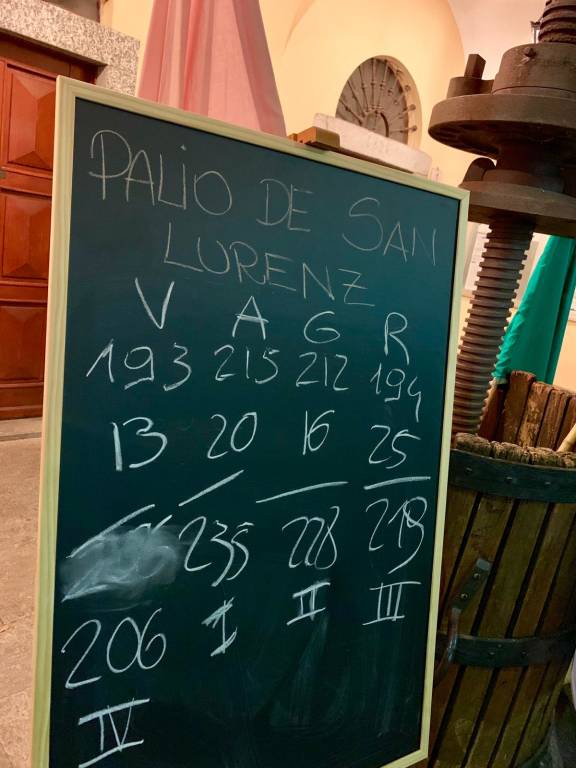 PALIO DE SAN
LURENZ
V A G R
193 215 212 194
13 20 16 25
235 228 219
206 I II III
IV